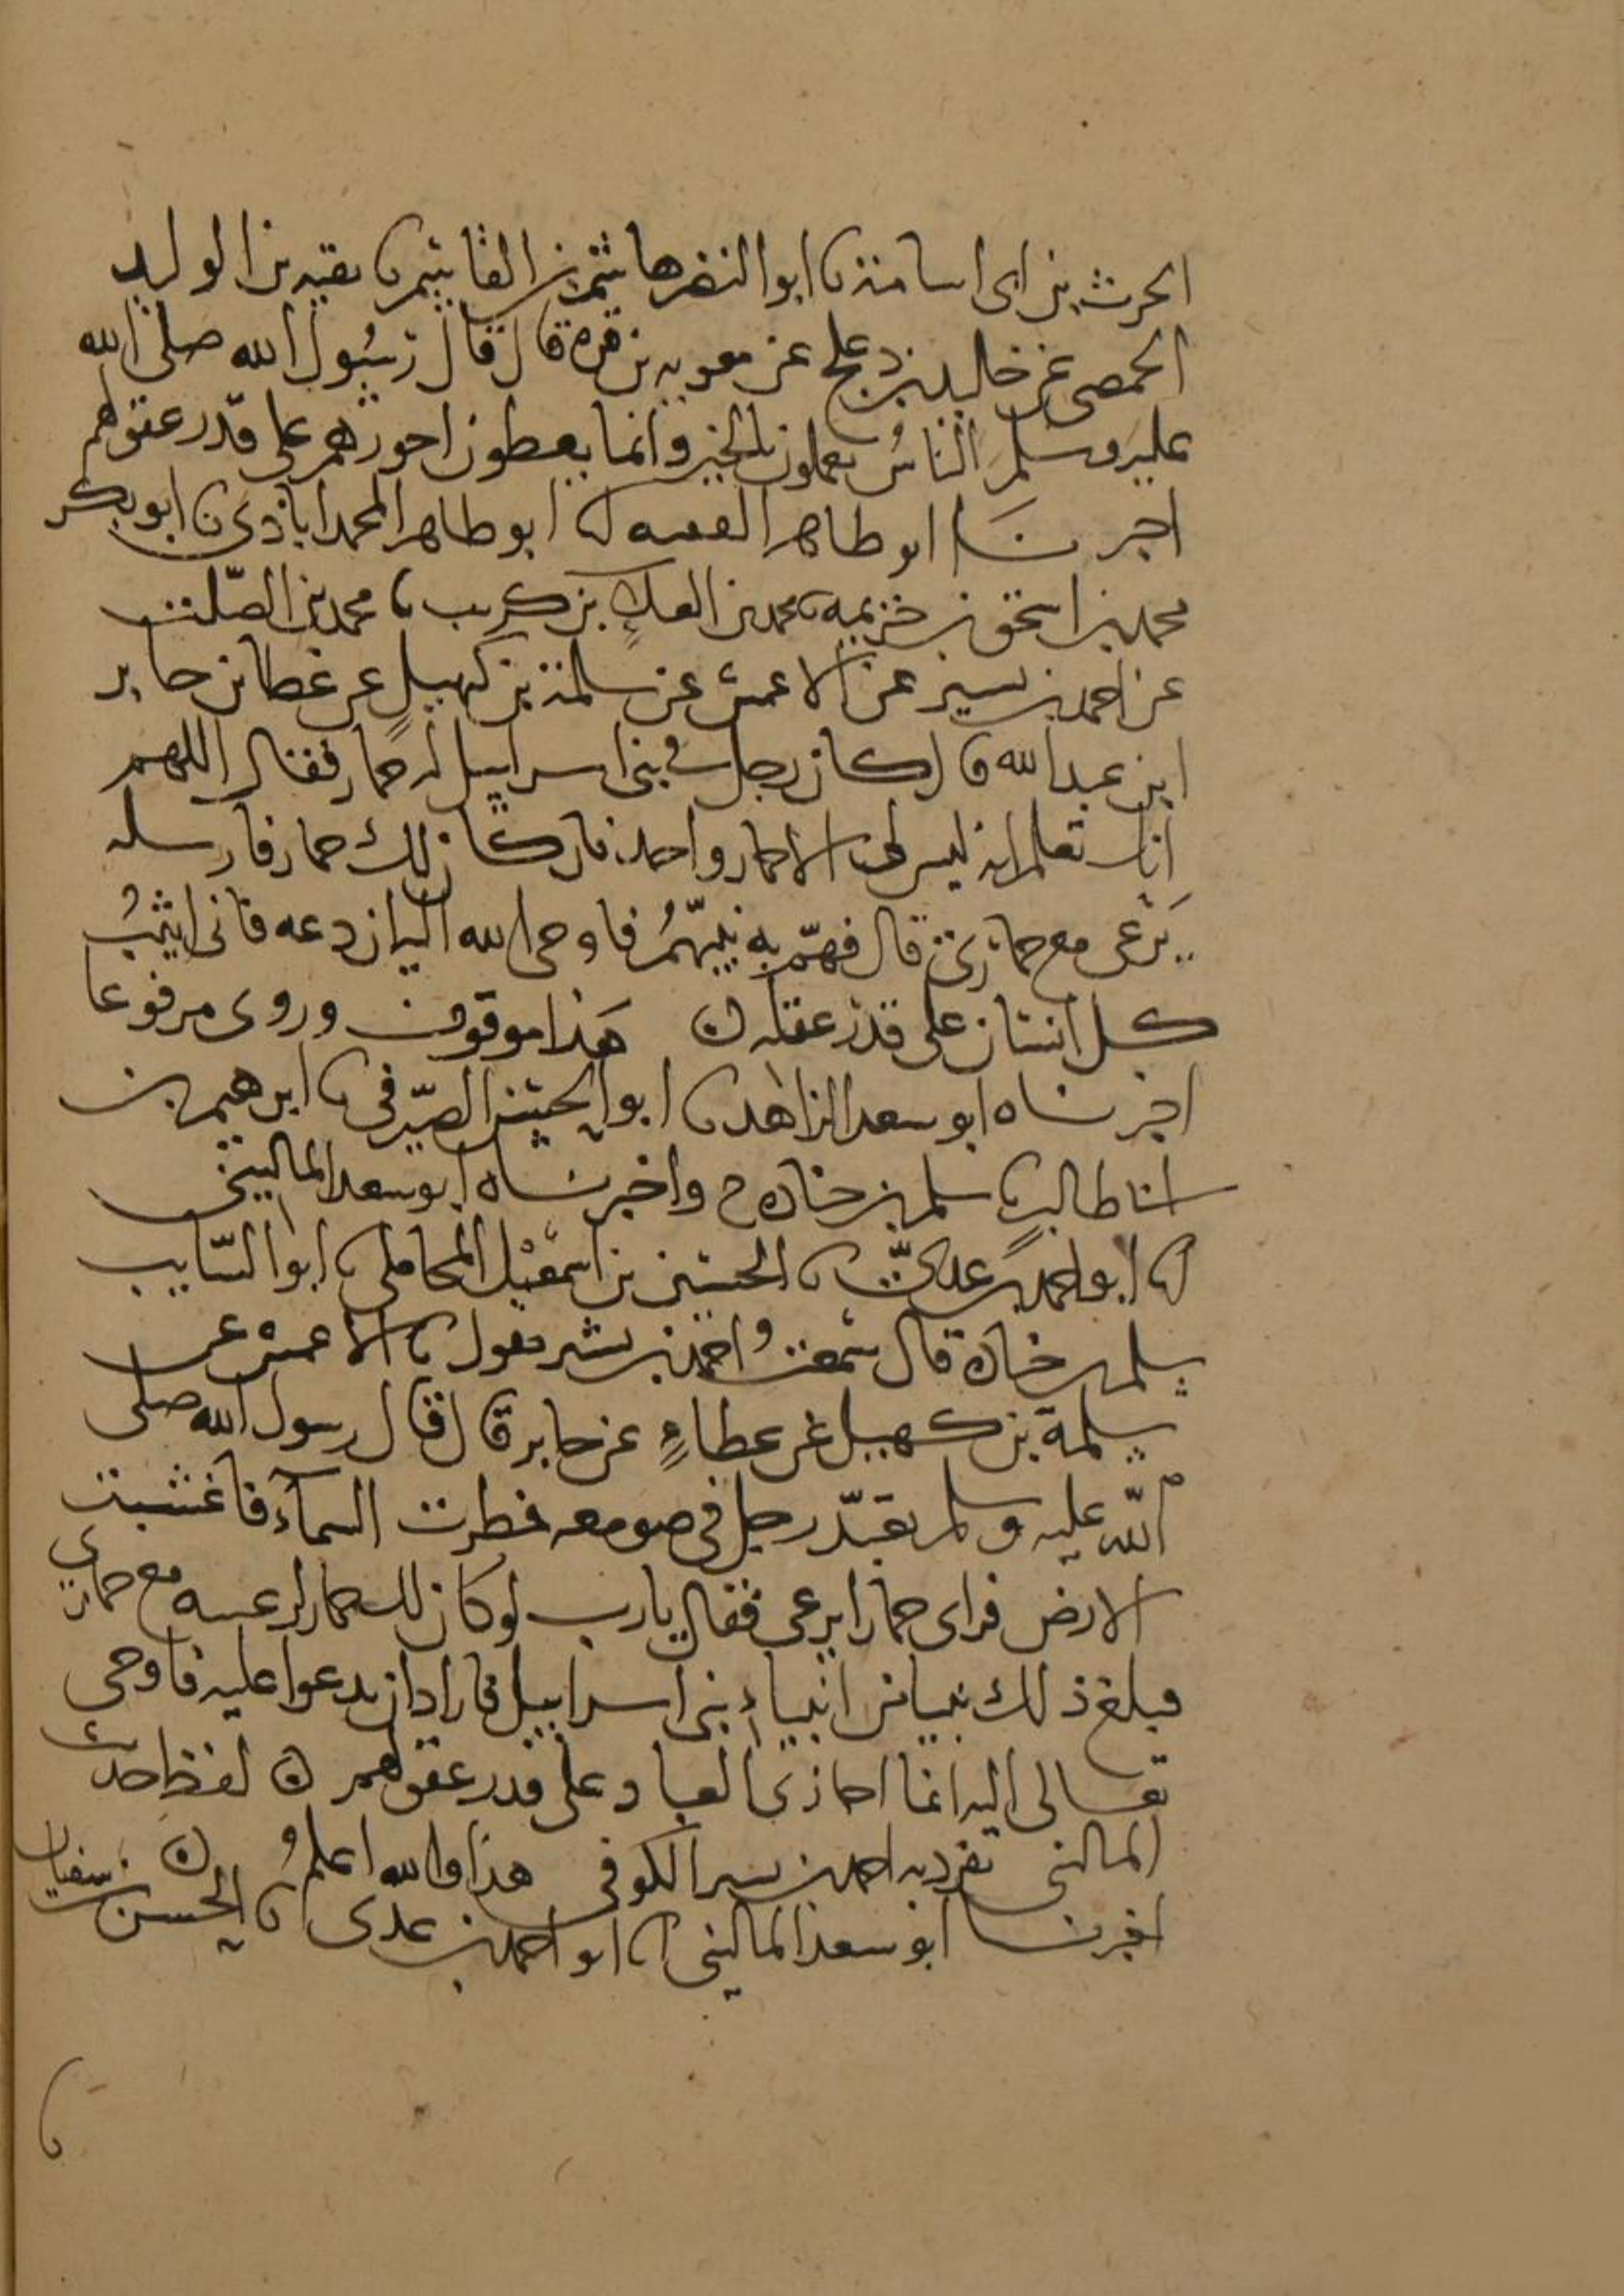 الحرث بن ابى اسامة نا ابو النضر هاشم بن القاسم نا بقيه بن الوليد
الحمصى عن خليد بن دعلج عن معويه بن قره قال قال رسول الله صلى الله
عليه وسلم الناس يعملون بالخير وانما يعطون اجورهم على قدر عقولهم
اخبرنا ابو طاهر الفقيه انا ابو طاهر المحمداباذى نا ابو بكر
محمد بن اسحق بن خزيمه نا محمد بن العلا بن كريب نا محمد بن الصلت
عن احمد بن بشير عن الاعمش عن سلمة بن كهيل عن عطا عن جابر
ابن عبد الله قال كان رجل فى بنى اسراييل له حمار فقال اللهم
انك تعلم انه ليس لى الا حمار واحد فان كان لك حمار فارسله
يرعى مع حمارى قال فهم به نبيهم فاوحى الله اليه ان دعه فانى اثيب
كل انسان على قدر عقله ه هذا موقوف وروى مرفوعا
اخبرناه ابو سعد الزاهد نا ابو الحسن الصيرفى نا ابرهيم بن
ابى طالب نا سلم بن جناده ح واخبرناه ابو سعد المالينى
انا ابو احمد بن عدى نا الحسين بن اسمعيل المحاملى نا ابو السايب
سلم بن جنادة قال سمعت احمد بن بشير يقول نا الاعمش عن
سلمة بن كهيل عن عطاء عن جابر قال قال رسول الله صلى
الله عليه وسلم تعبد رجل فى صومعه فمطرت السماء فاعشبت
الارض فراى حمارا يرعى فقال يارب لو كان لك حمار لرعيته مع حمارى
فبلغ ذلك نبيا من انبياء بنى اسراييل فاراد ان يدعوا عليه فاوحى
تعالى اليه انما اجازى العباد على قدر عقولهم ه لفظ حديث
المالينى تفرد به احمد بن بشير الكوفى هذا والله اعلم ه
اخبرنا ابو سعد المالينى انا ابو احمد بن عدى نا الحسن بن سفيان